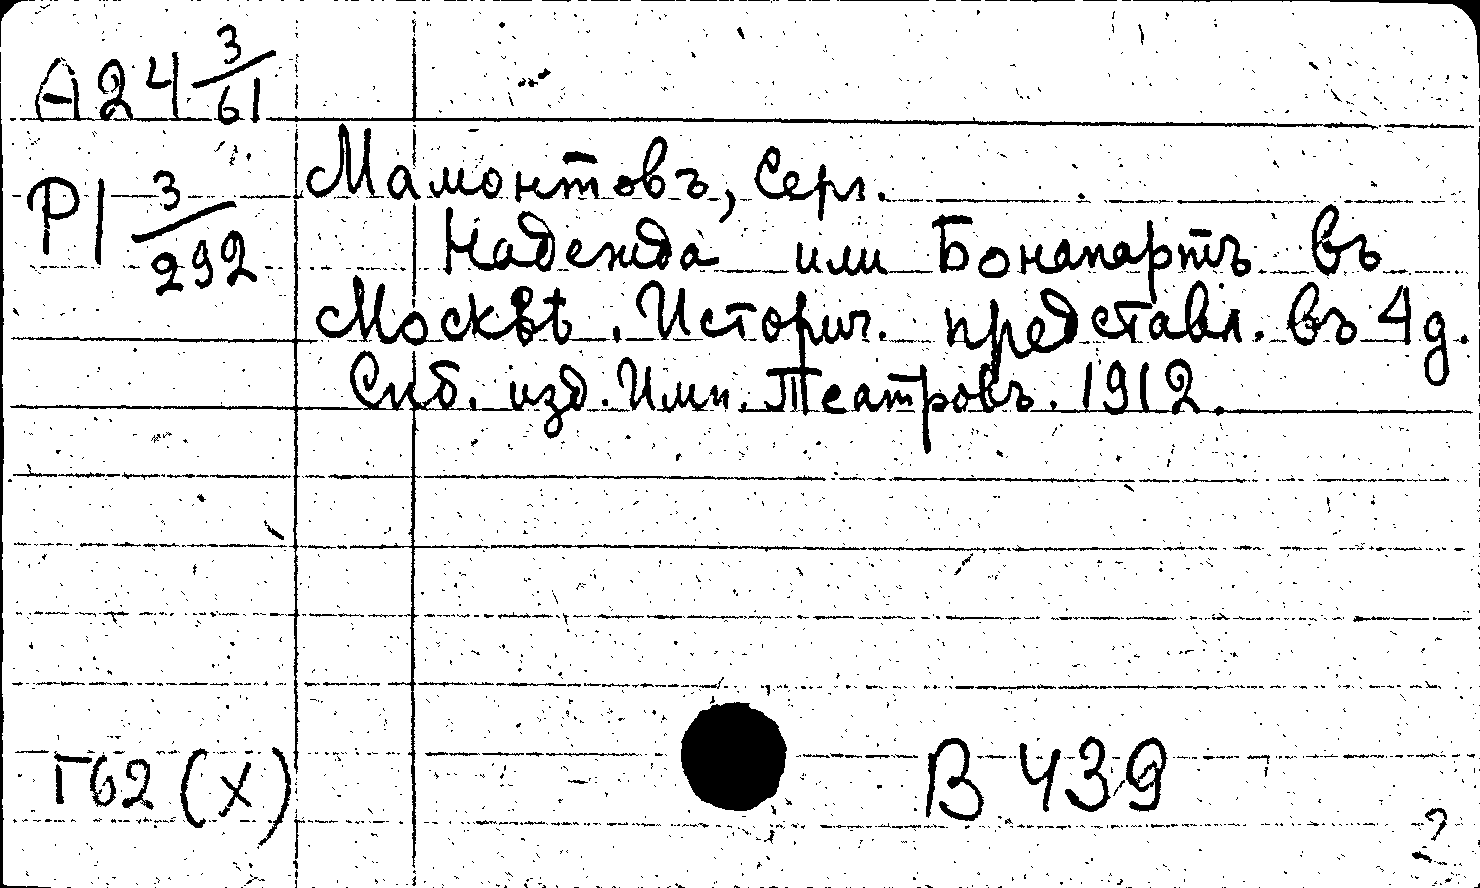 А24 3/61
Мамонтовъ, Серг.
Р1 3/292
Надежда или Бонапартъ въ
Москвѣ. Историч. представл. въ 4 д.
Спб. изд. Имп. Театровъ. 1912.
Г62 (X)
В 439
2